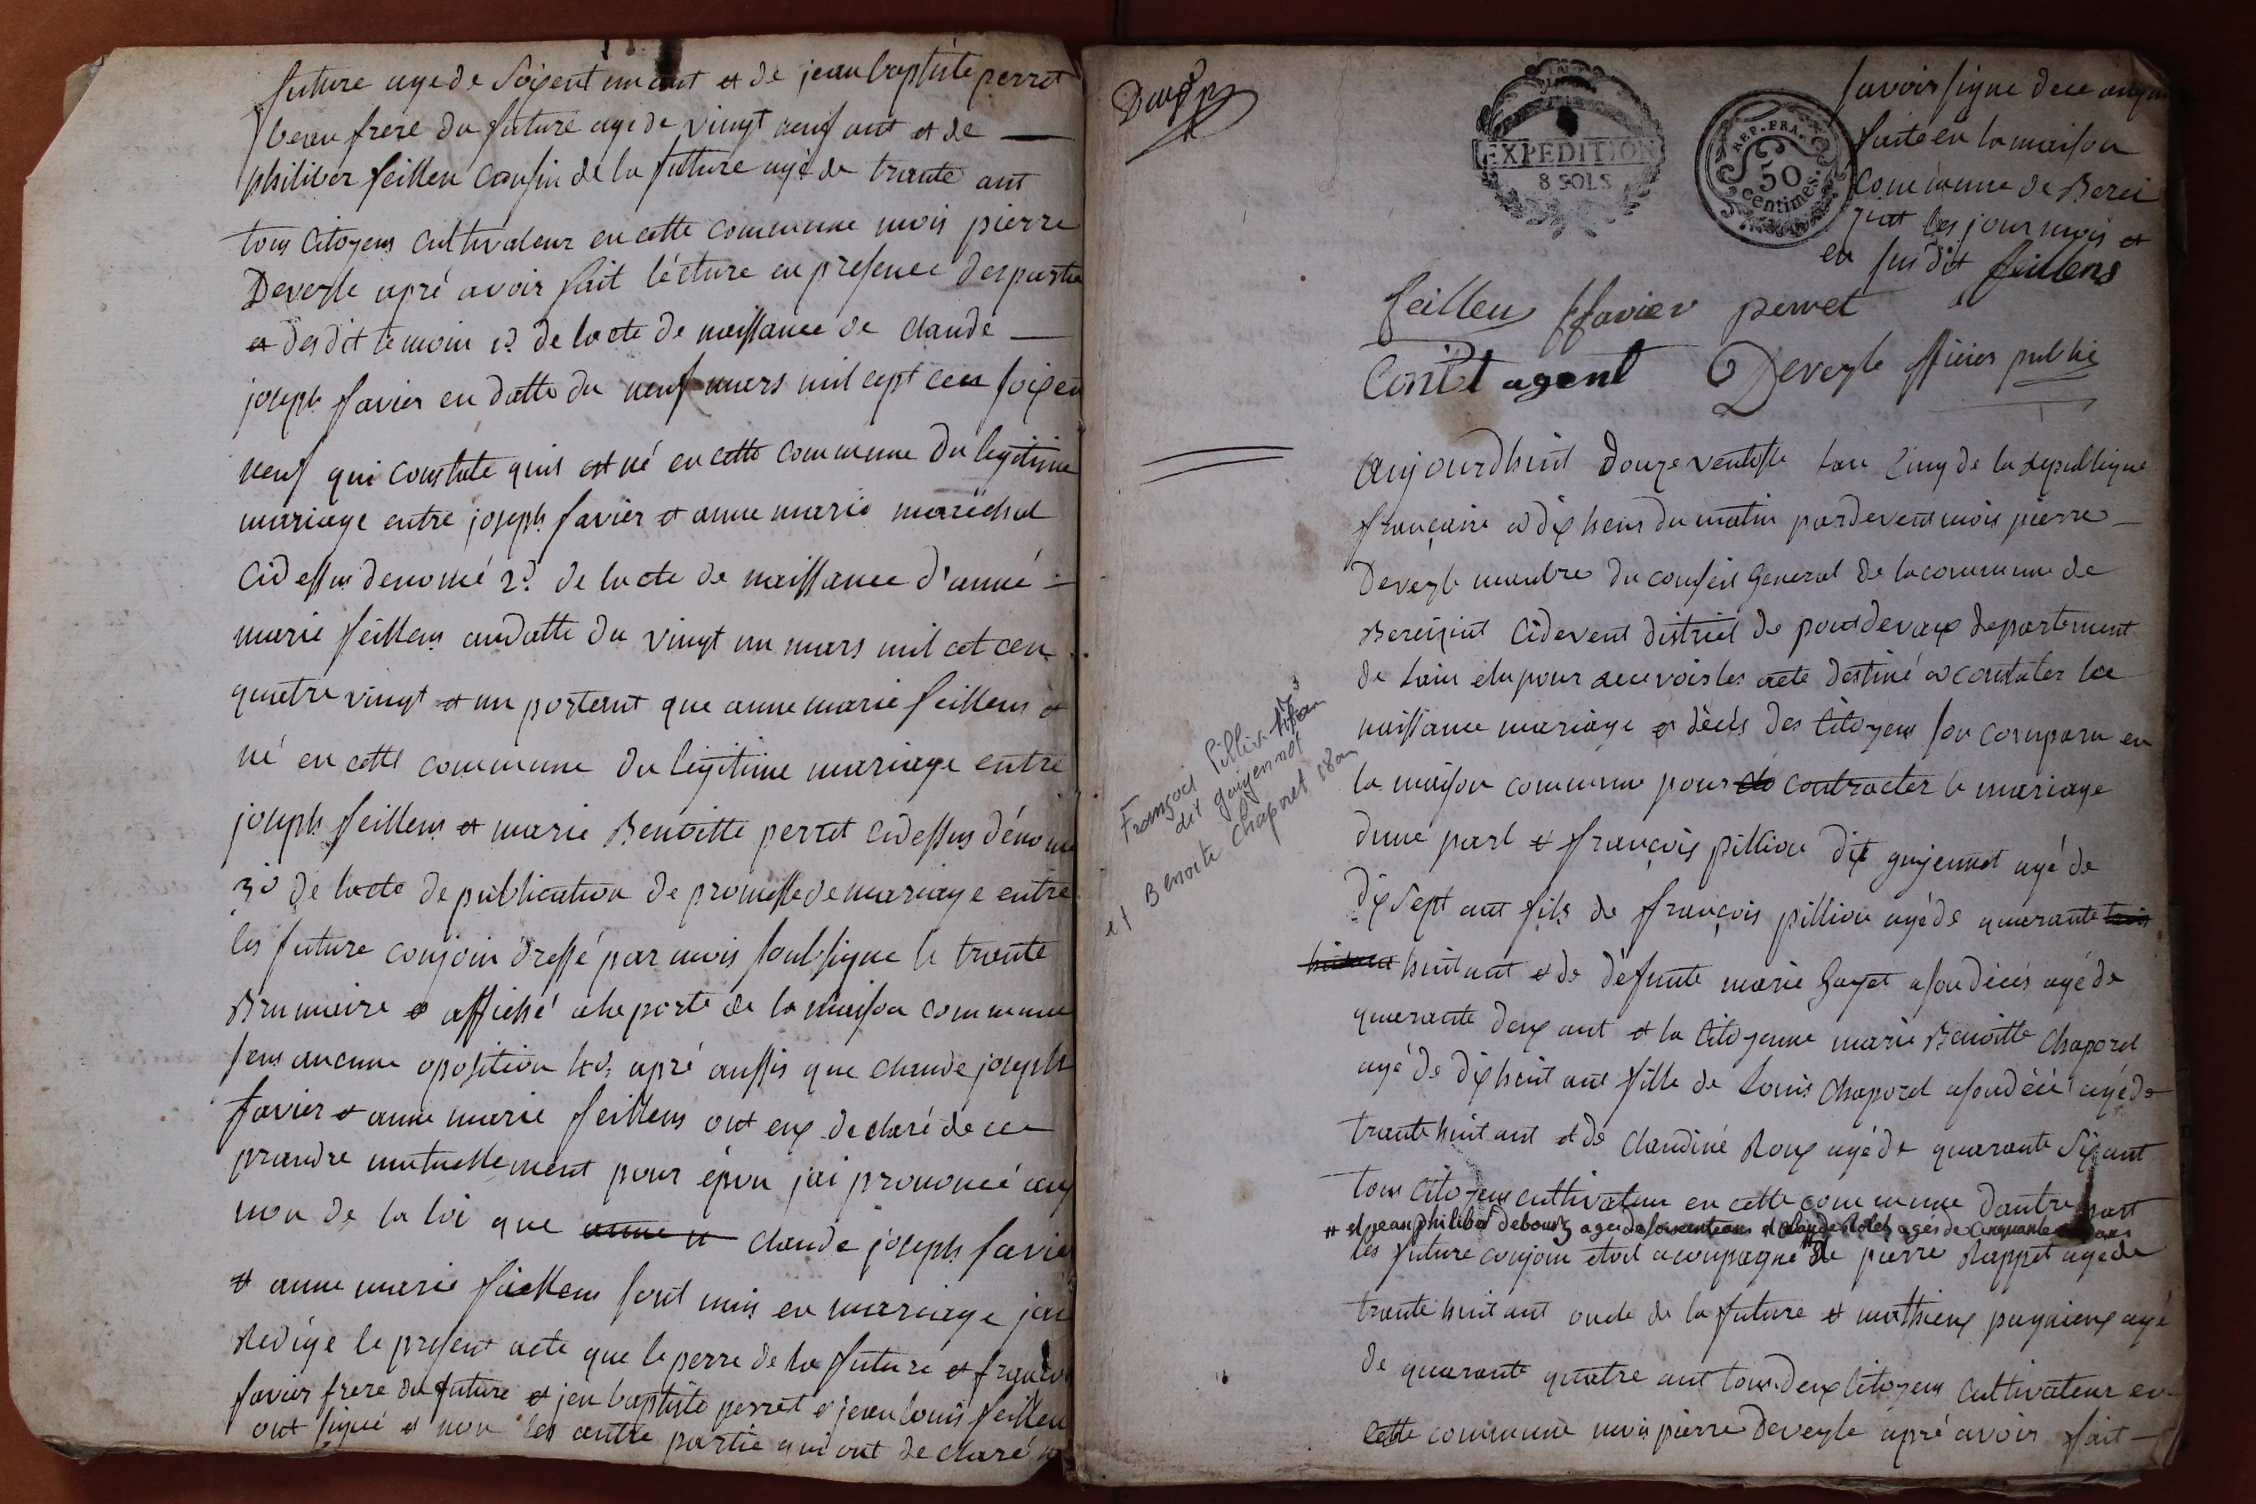 future agé de soixent un ant et de jean baptiste perret
beau frere du future agé de vingt neuf ant et de
philiber feillen cousin de la future agé de trante ant
tous Citoyens cultivateur en cette commune mois pierre
Deveyle apré avoir fait lécture en presence des partie
et desdit temoin 1? de lacte de naissance de claude
joseph favier en datte du neuf mars mil cept cen soixen
neuf qui constate quis est né en cette commune du legitime
mariage entre joseph favier et anne marie maréchal
Cidessus denomé 2? de lacte de naissance d'anne
marie feillens andatte du vingt un mars mil cet cen
quatre vingt et un portant que anne marie feillens et
né en cette commune du légitime mariage entre
joseph feillens et marie Benoitte perret cidessus dénomé
3o de lacte de publication de promesse de mariage entre
les future conjoin dressé par mois soussigne le trante
Brumaire et affiché a la porte de la maison commune
sans aucune oposition apré aussis que claude joseph
favier et anne marie feillens ont eux declaré de ce
prandre mutuellement pour épou jai prononcé au
non de la loi que claude joseph favie
et anne marie feillens sont unis en mariage jai
Redigé le present acte que le perre de la future et francoi
favier frere du future et jen baptiste perret et jean louis feillen
ont signé et non les autre partie qui ont declaré ne
EXPEDITION
8 SOLS
REP. FRA.
50
centimes.
savoir signe de ce
faite en la maison
commune de Berei
ziat les jour mois et
en susdit feillens
feillens ffavier perret
Contet agent Deveyle officier public
Aujourdhuit douze ventosse lan cinq de la republique
française a dix heurs du matin pardevent mois pierre
Deveyle membre du conseil General de la commune de
Bereiziat cidevent district de pontdevaux departement
de lain elu pour recevoir les acte destiné a constater les
naissance mariage et décés des Citoyens son comparu en
la maison commune pour contracter le mariage
dune part et françois pillion dit guyennot agé de
dix sept ant fils de françois pillion agé de quarante
huit ant et de défunte marie Gayet a son décés agé de
quarante deux ant et la Citoyenne marie Benoitte Chaporel
agé de dix huit ant fille de Louis Chaporel a son décé agé de
trante huit ant et de Claudine Roux agé de quarante Six ant
tous Citoyens cultivateur en cette commune dautre part
# et jean philiber debourg ages de soixante ans et claude Rolet agés de cinquante ans
les future conjoin etoit acompagne # de pierre Rappet agé de
trante huit ant oncle de la future et mathieux pugnieux agé
de quarante quatre ant tous deux Citoyens Cultivateur en
Cette commune mois pierre Deveyle apré avoir fait
François Pillion 17 ans
dit guyennot
et Benoite Chaporel 18 an